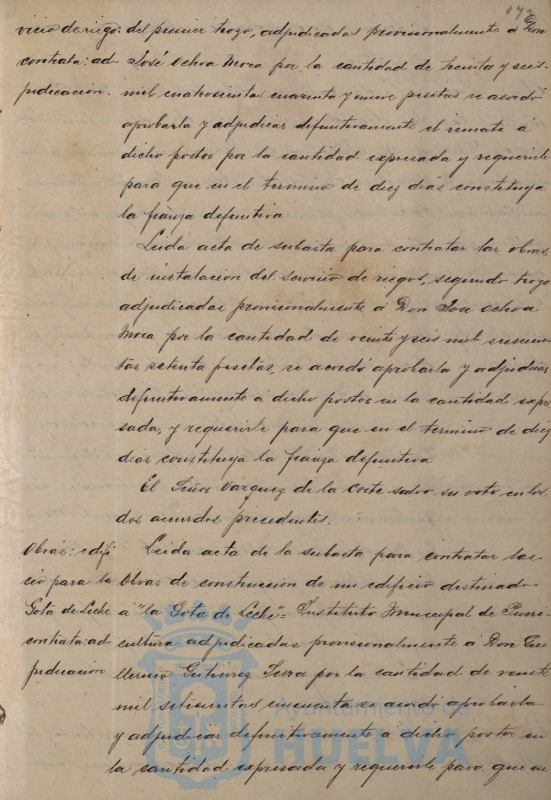 172
vicio de riego: del primer trozo, adjudicadas provisionalmente á Don
contrata: ad- José Ochoa Mora por la cantidad de treinta y seis
judicación. mil cuatrocientas cuarenta y nueve pesetas se acordó
aprobarla y adjudicar definitivamente el remate á
dicho postor por la cantidad expresada y requerirle
para que en el termino de diez dias constituya
la fianza definitiva
Leida acta de subasta para contratar las obras
de instalacion del servicio de riegos, segundo trozo
adjudicadas provisionalmente á Don Jose Ochoa
Mora por la cantidad de veinte y seis mil seiscien-
tas setenta pesetas, se acordó aprobarla y adjudicar
definitivamente á dicho postor en la cantidad expre
sada, y requerirle para que en el termino de diez
dias constituya la fianza definitiva
El Señor Vazquez de la Corte salvo su voto en los
dos acuerdos precedentes.
Obras: edifi Leida acta de la subasta para contratar las
cio para la obras de construccion de un edificio destinado
Gota de Leche á "la Gota de Leche"= Instituto Municipal de Pueri
contrata: ad cultura adjudicadas provisionalmente á Don Gui
judicacion llermo Gutierrez Serra por la cantidad de veinte
mil setecientas cincuenta se acordó aprobarla
y adjudicar definitivamente á dicho postor en
la cantidad expresada y requerirle para que en
Ayuntamiento de
HUELVA